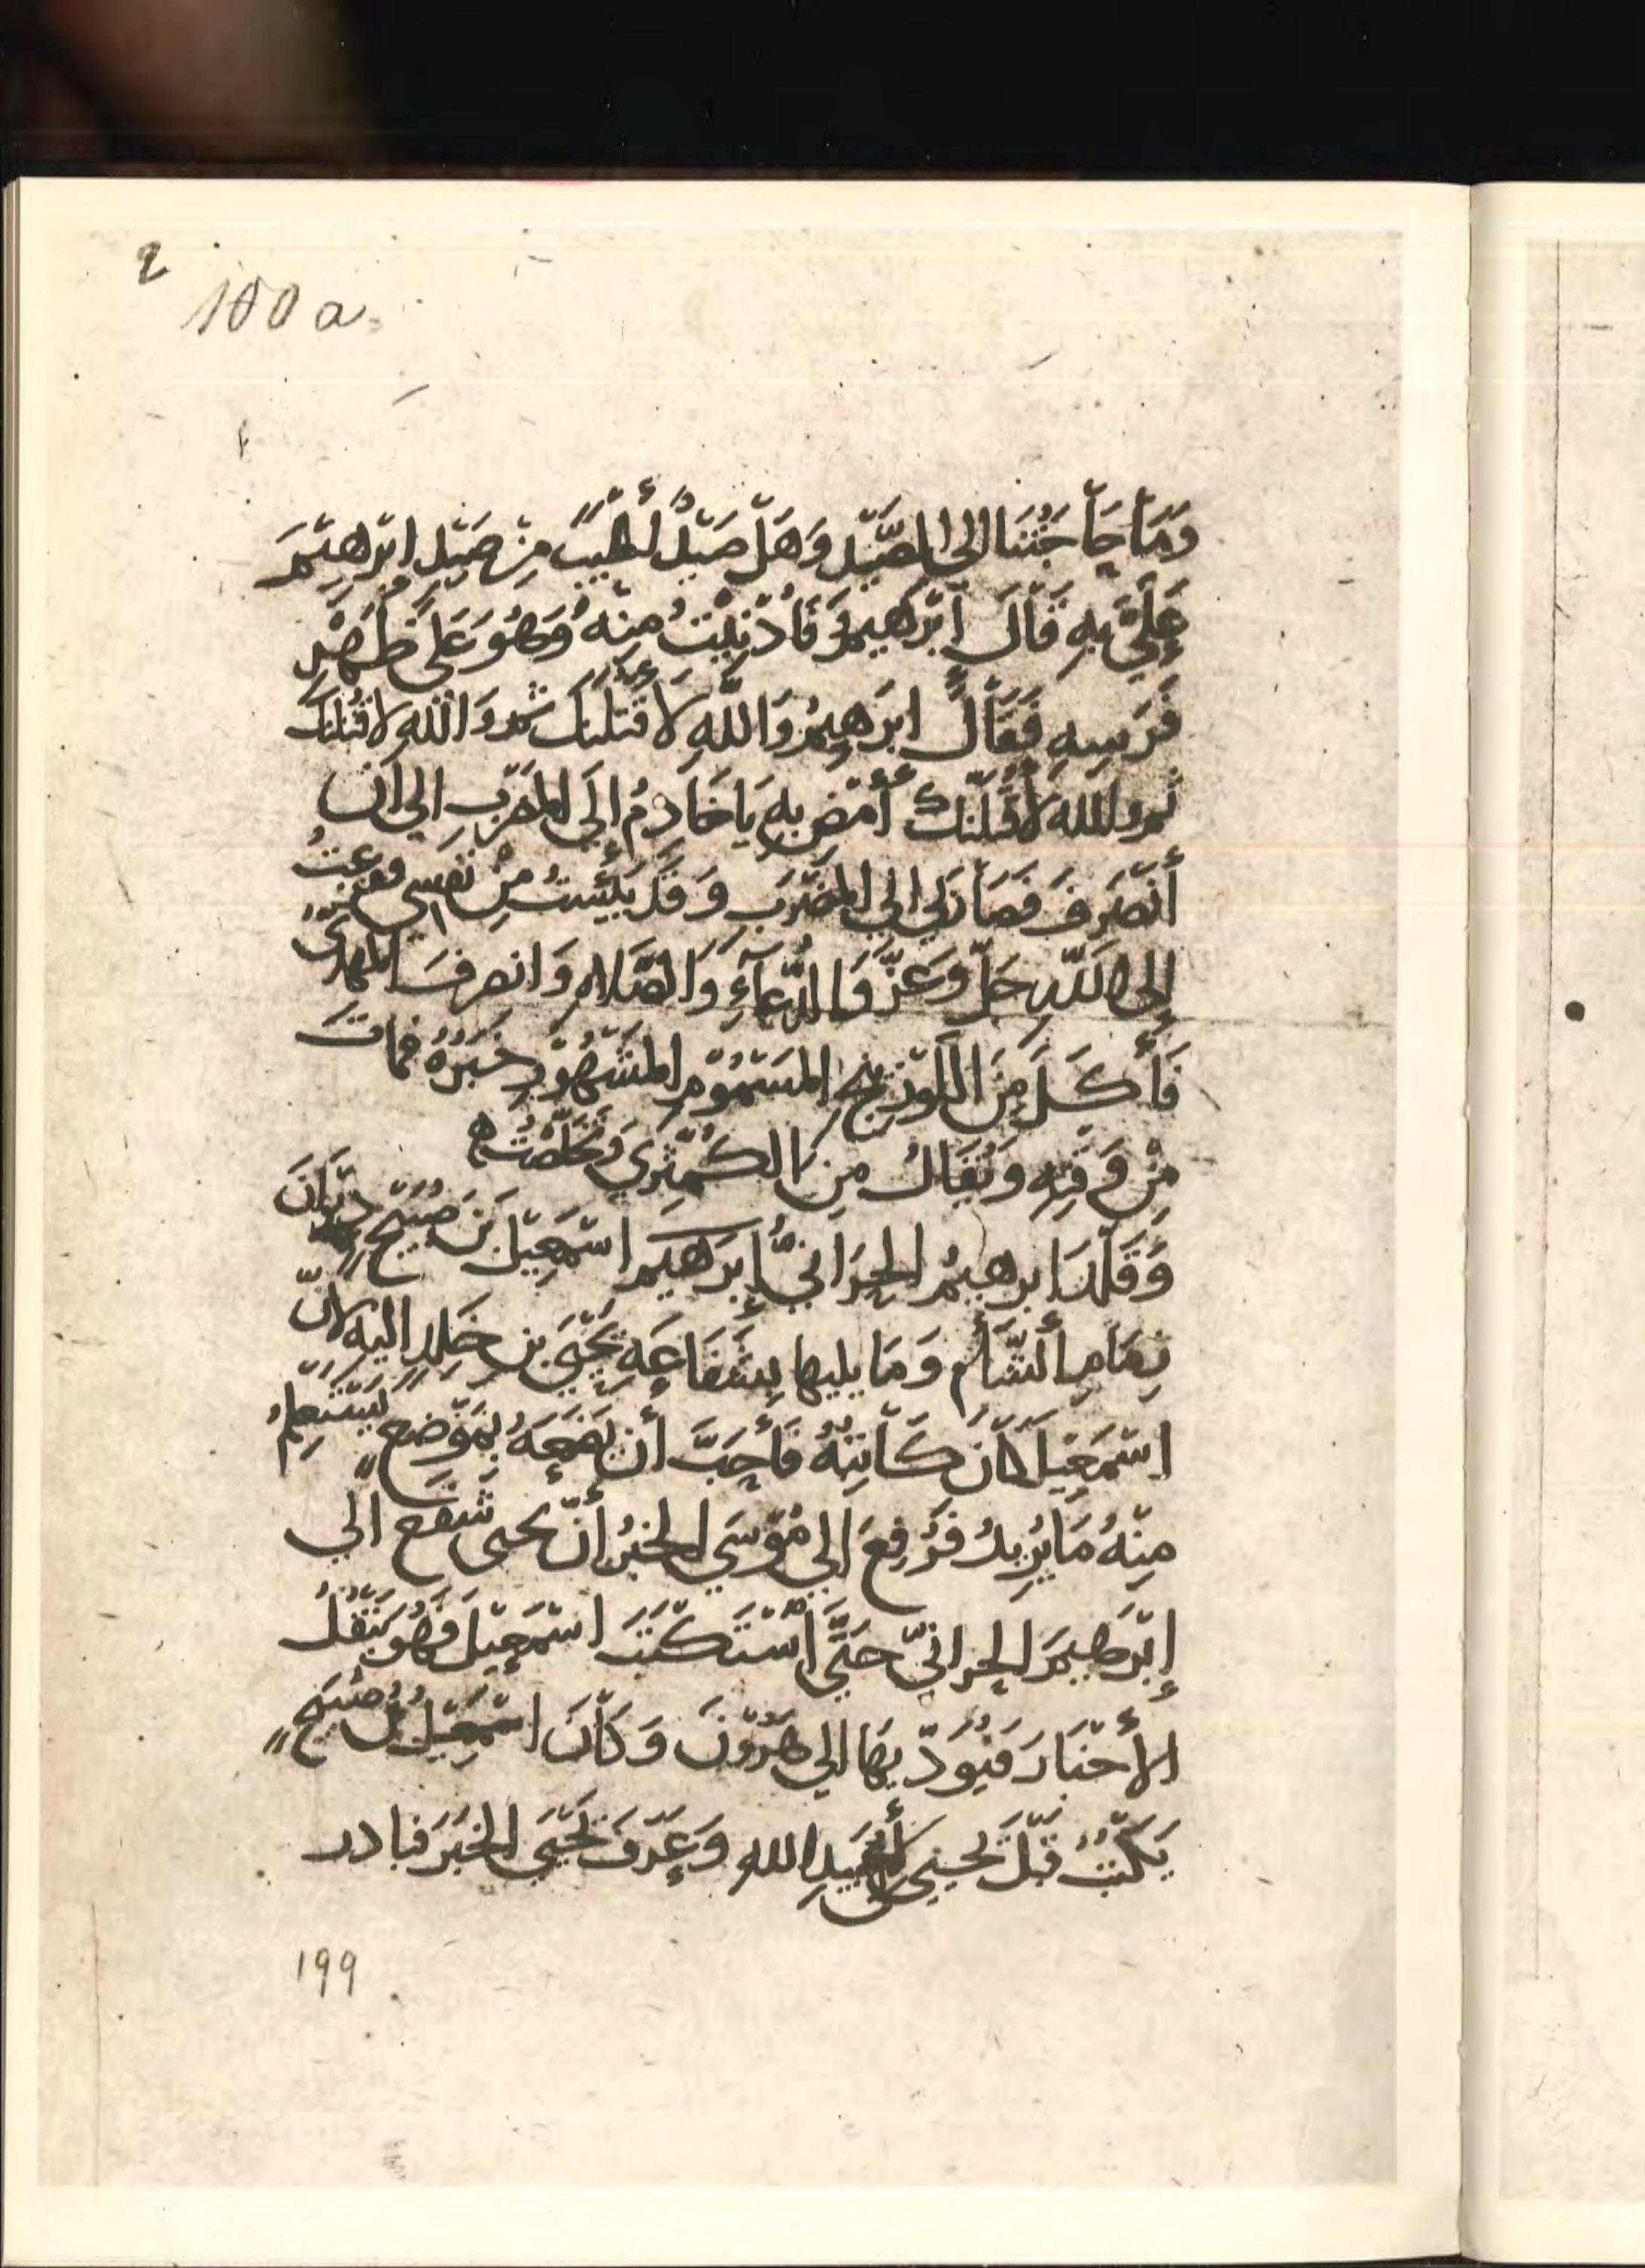 2
100 a
وَمَا حَاجَتُنَا إِلَى الصَّيْدِ وَهَلْ صَيْدٌ أَطْيَبُ مِنْ صَيْدِ ابْرهِيْمَ
عَلَيَّ بِهِ قَالَ إِبْرَهِيمُ فَأُدْنِيْتُ مِنْهُ وَهُوَ عَلَى ظَهْرِ
فَرَسِهِ فَقَالَ ابْرَهِيمُ وَاللَّهِ لَأَقْتُلَنَّكَ ثم وَاللهِ لَاقْتُلَنَّكَ
ثم والله لَأَقْتُلَنَّكَ أُمْضِ بِهِ يَا خَادِمُ إِلَى المَضْرَبِ الى ان
أَنْصَرِفَ فَصَارَ بي إلى المَضْرَبِ وَقَدْ يَئِسْتُ مِنْ نَفْسِي ففزعتُ
إِلى اللّهِ جَلَّ وَعَزَّ وَالدُّعَآءِ وَالصَّلاه وَانصرفَ المَهْدِيُّ
فَأَكَلَ مِنَ اللَّوْزِينجِ المَسْمُوْمِ المَشْهُوْرِ خَبَرُهُ فماتَ
مِنْ وَقْتِهِ وَيُقَالُ مِنَ الكُمَّثْرَى وَتَخَلَّصْتُ ه
وَقَلَّدَ ابرهيمُ الحَرَّانيُّ إبرَهيم اسْمعِيْلَ بنَ صُبَيْحٍ دِيْوَانَ
زِمَامِ الشَّأْمِ وَمَا يليها بِشَفَاعَةِ يَحْيَى بن خلدٍ اليه لانّ
اسْمعِيْلَ كَانَ كَاتِبَهُ فَأَحَبَّ أَن يَضَعَهُ بِمَوْضعٍ يَسْتَعْلِمُ
مِنْهُ مَا يُرِيدُ فَرُفِعَ إلى مُوْسَى الخبرُ أنّ يحيى شَفَعَ الى
إِبْرهِيمَ الحرانيّ حَتَّى اسْتَكْتَبَ اسْمعِيْلَ فَهُو يَنْقُلُ
الأَخْبَارَ فَيُوَدِّيهَا الى هَرُوْنَ وَكَانَ اسْمعِيْلُ بْنُ صُبَيْحٍ
يَكْتُبُ قَبْلَ يحيى لأبي عُبَيْدِ الله وَعَرَفَ يَحْيَى الخبَرَ فبادر
١٩٩